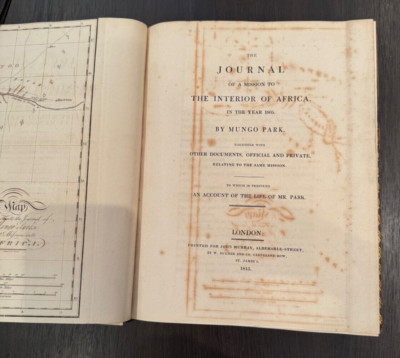 Map
THE
JOURNAL
OF A MISSION TO
THE INTERIOR OF AFRICA,
IN THE YEAR 1805.
BY MUNGO PARK.
TOGETHER WITH
OTHER DOCUMENTS, OFFICIAL AND PRIVATE,
RELATING TO THE SAME MISSION.
TO WHICH IS PREFIXED
AN ACCOUNT OF THE LIFE OF MR. PARK.
LONDON:
PRINTED FOR JOHN MURRAY, ALBEMARLE-STREET,
BY W. BULMER AND CO. CLEVELAND-ROW,
ST. JAMES'S.
1815.